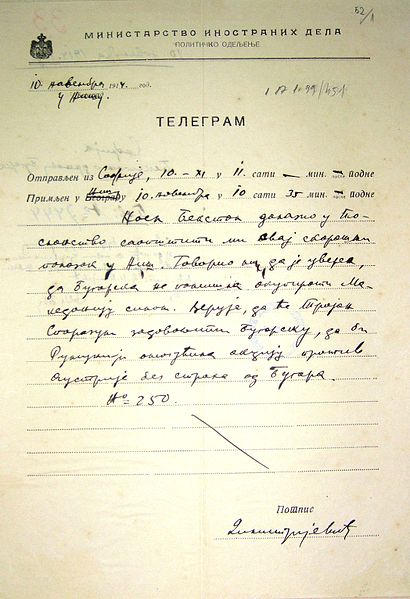 52/1
МИНИСТАРСТВО ИНОСТРАНИХ ДЕЛА
ПОЛИТИЧКО ОДЕЉЕЊЕ
10. новембра 1914. год.
у Нишу.
ТЕЛЕГРАМ
Отправљен из Софије, 10.-XI у 11. сати — мин. — подне
Примљен у Ниш 10. новембра у 10 сати 35 мин. — подне
Ноел Бекстон долазио у По-
сланство саопштити ми свој скорашњи
полазак у Ниш. Говорио ми, да је уверен,
да Бугарска не помишља окупирати Ма-
кедонију силом. Верује, да ће Тројни
Споразум задовољити Бугарску, да би
Румунији омогућила акцију против
Аустрије без страха од Бугара.
№ 250
Потпис